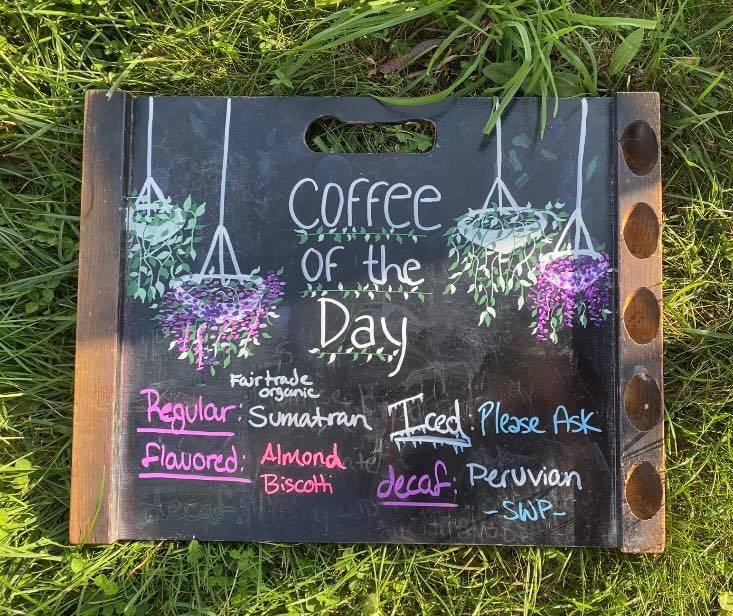 Coffee
of the
Day
Fairtrade
organic
Regular: Sumatran
flavored: Almond
Biscotti
Iced: Please Ask
decaf: Peruvian
-SWP-
decaf: